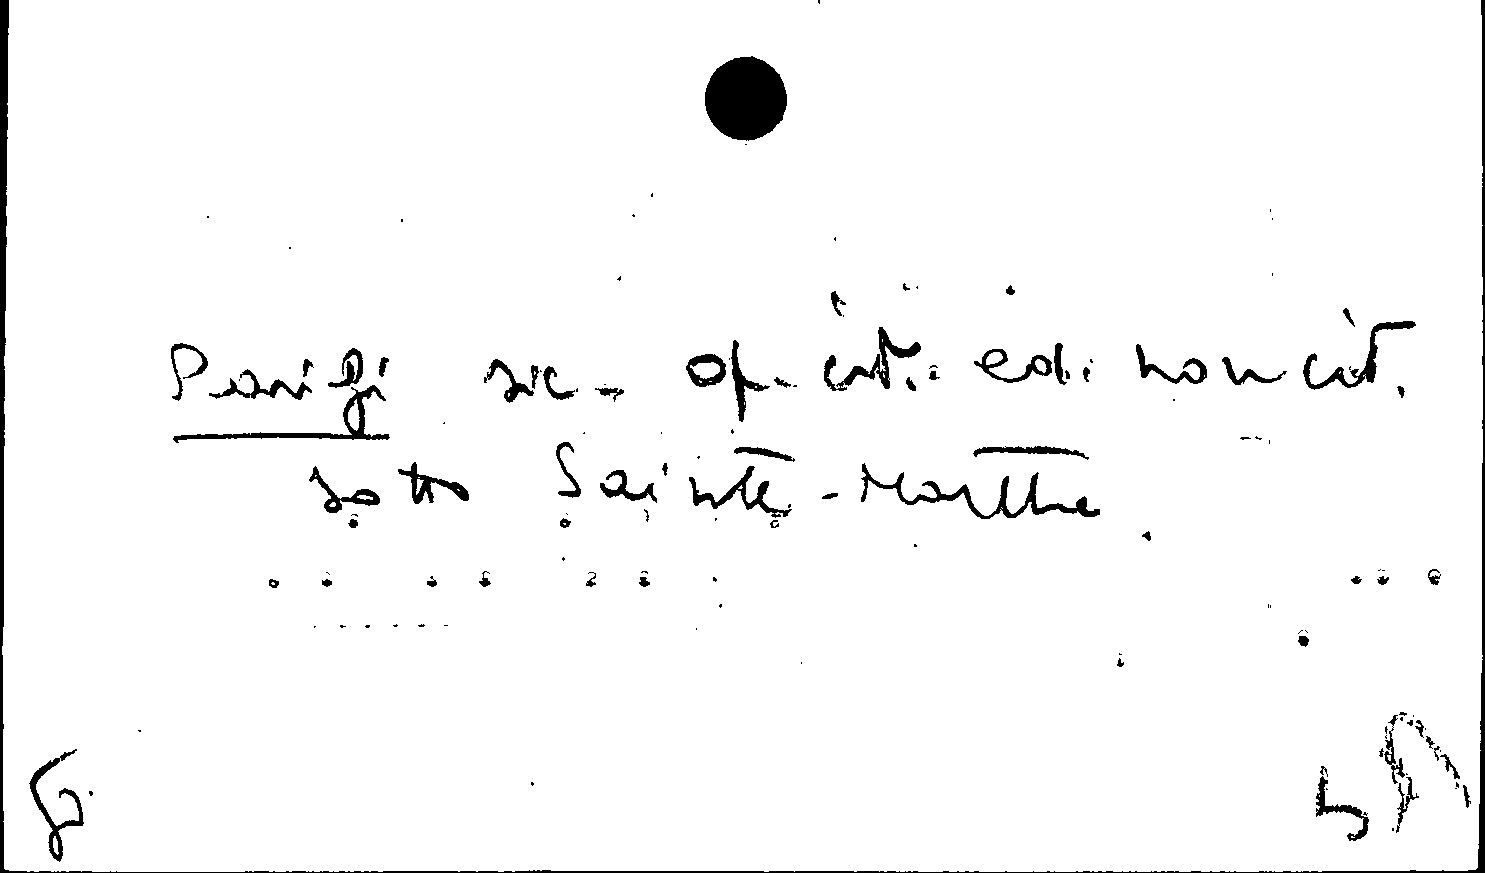 Parigi sic - op. cit.: ed. non cit.
sotto Sainte-Marthe
G.